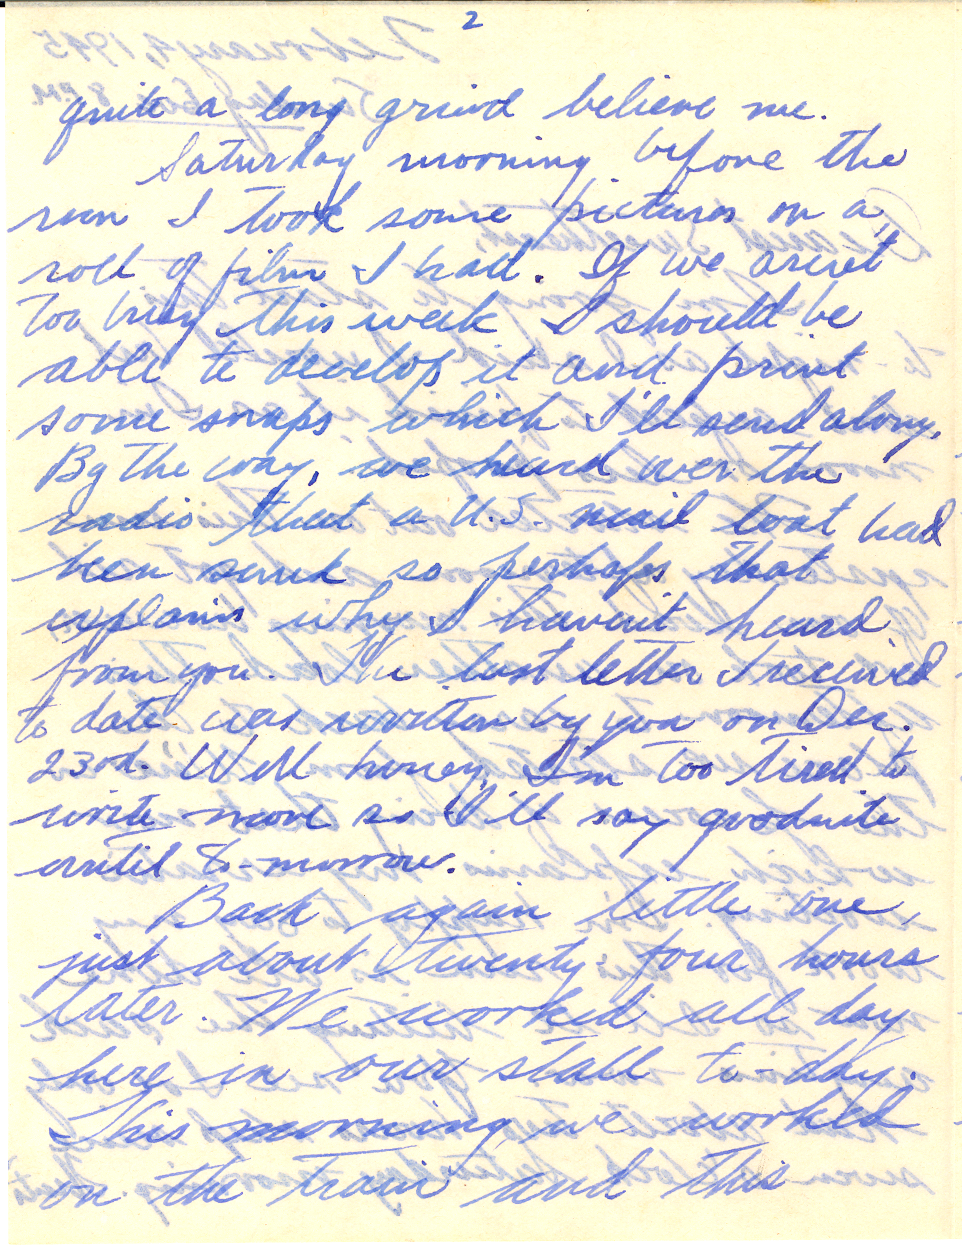 2
quite a long grind believe me.
Saturday morning before the
run I took some pictures on a
roll of film I had. If we aren't
too busy this week I should be
able to develop it and print
some snaps which I'll send along.
By the way, we heard over the
radio that a U.S. mail boat had
been sunk so perhaps that
explains why I haven't heard
from you. The last letter I received
to date was written by you on Dec.
23rd. Well honey, I'm too tired to
write more so I'll say goodnite
until to-morrow.
Back again little one,
just about twenty-four hours
later. We worked all day
here in our stall to-day.
This morning we worked
on the train and this